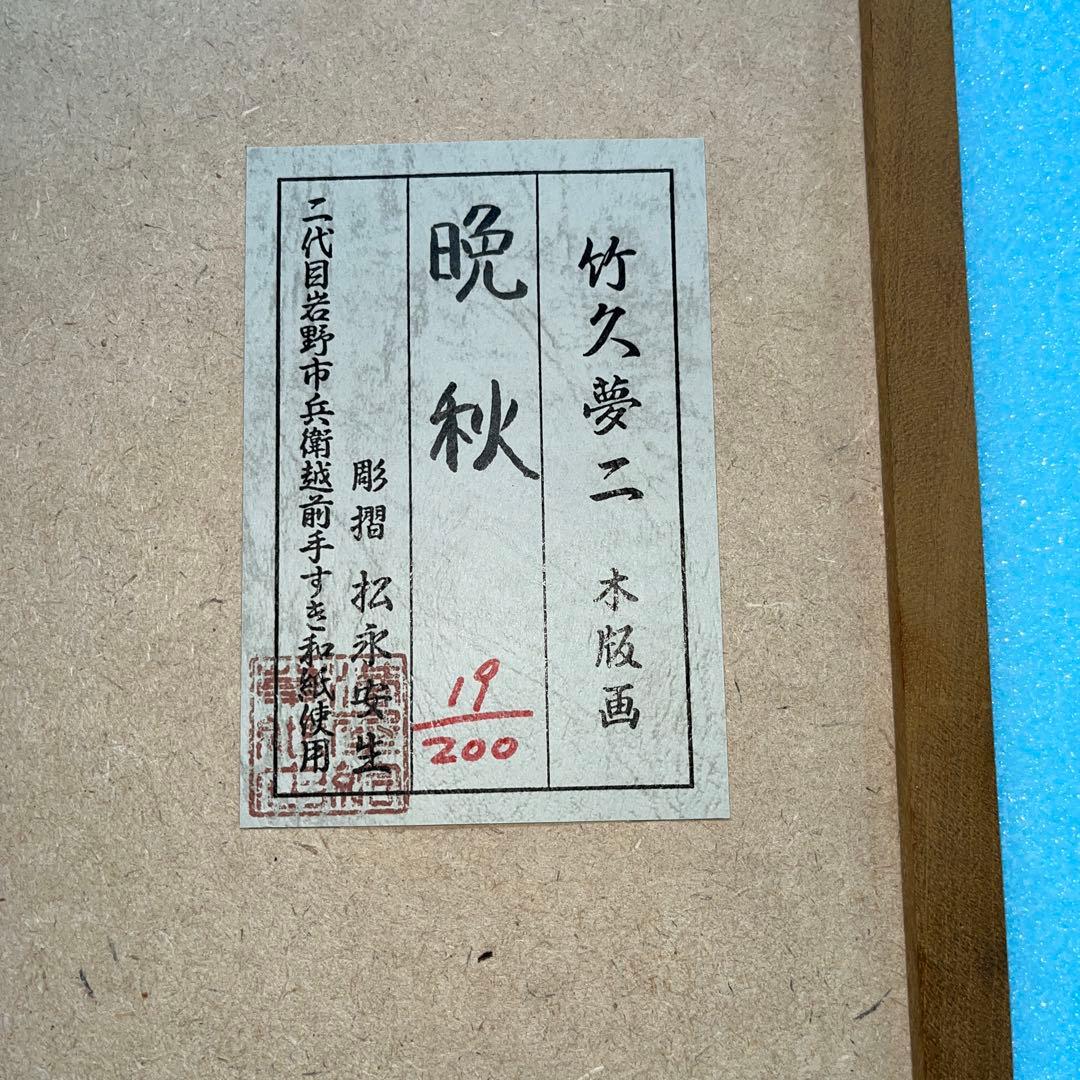 竹久夢二 木版画
晩秋
19/200
彫摺 松永安生
二代目岩野市兵衛越前手すき和紙使用